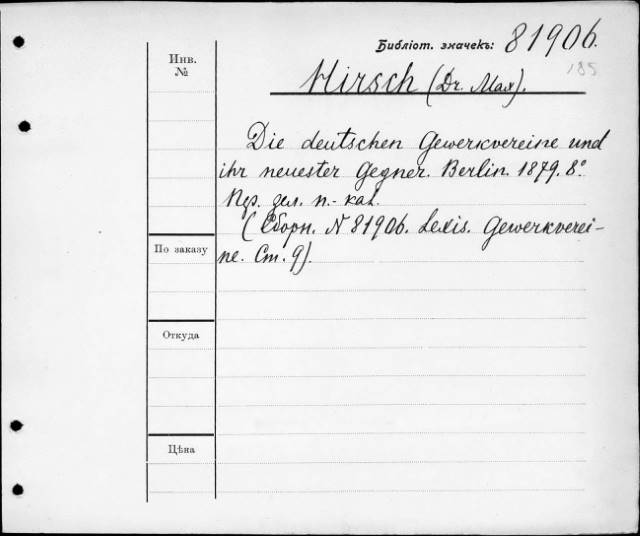 Библіот. значекъ: 81906.
185
Инв.
№
Hirsch (Dr. Max).
Die deutschen Gewerkvereine und
ihr neuester Gegner. Berlin. 1879. 8°.
Пер. зел. п.-кал.
(Сборн. № 81906. Lexis. Gewerkverei-
ne. Ст. 9).
По заказу
Откуда
Цѣна